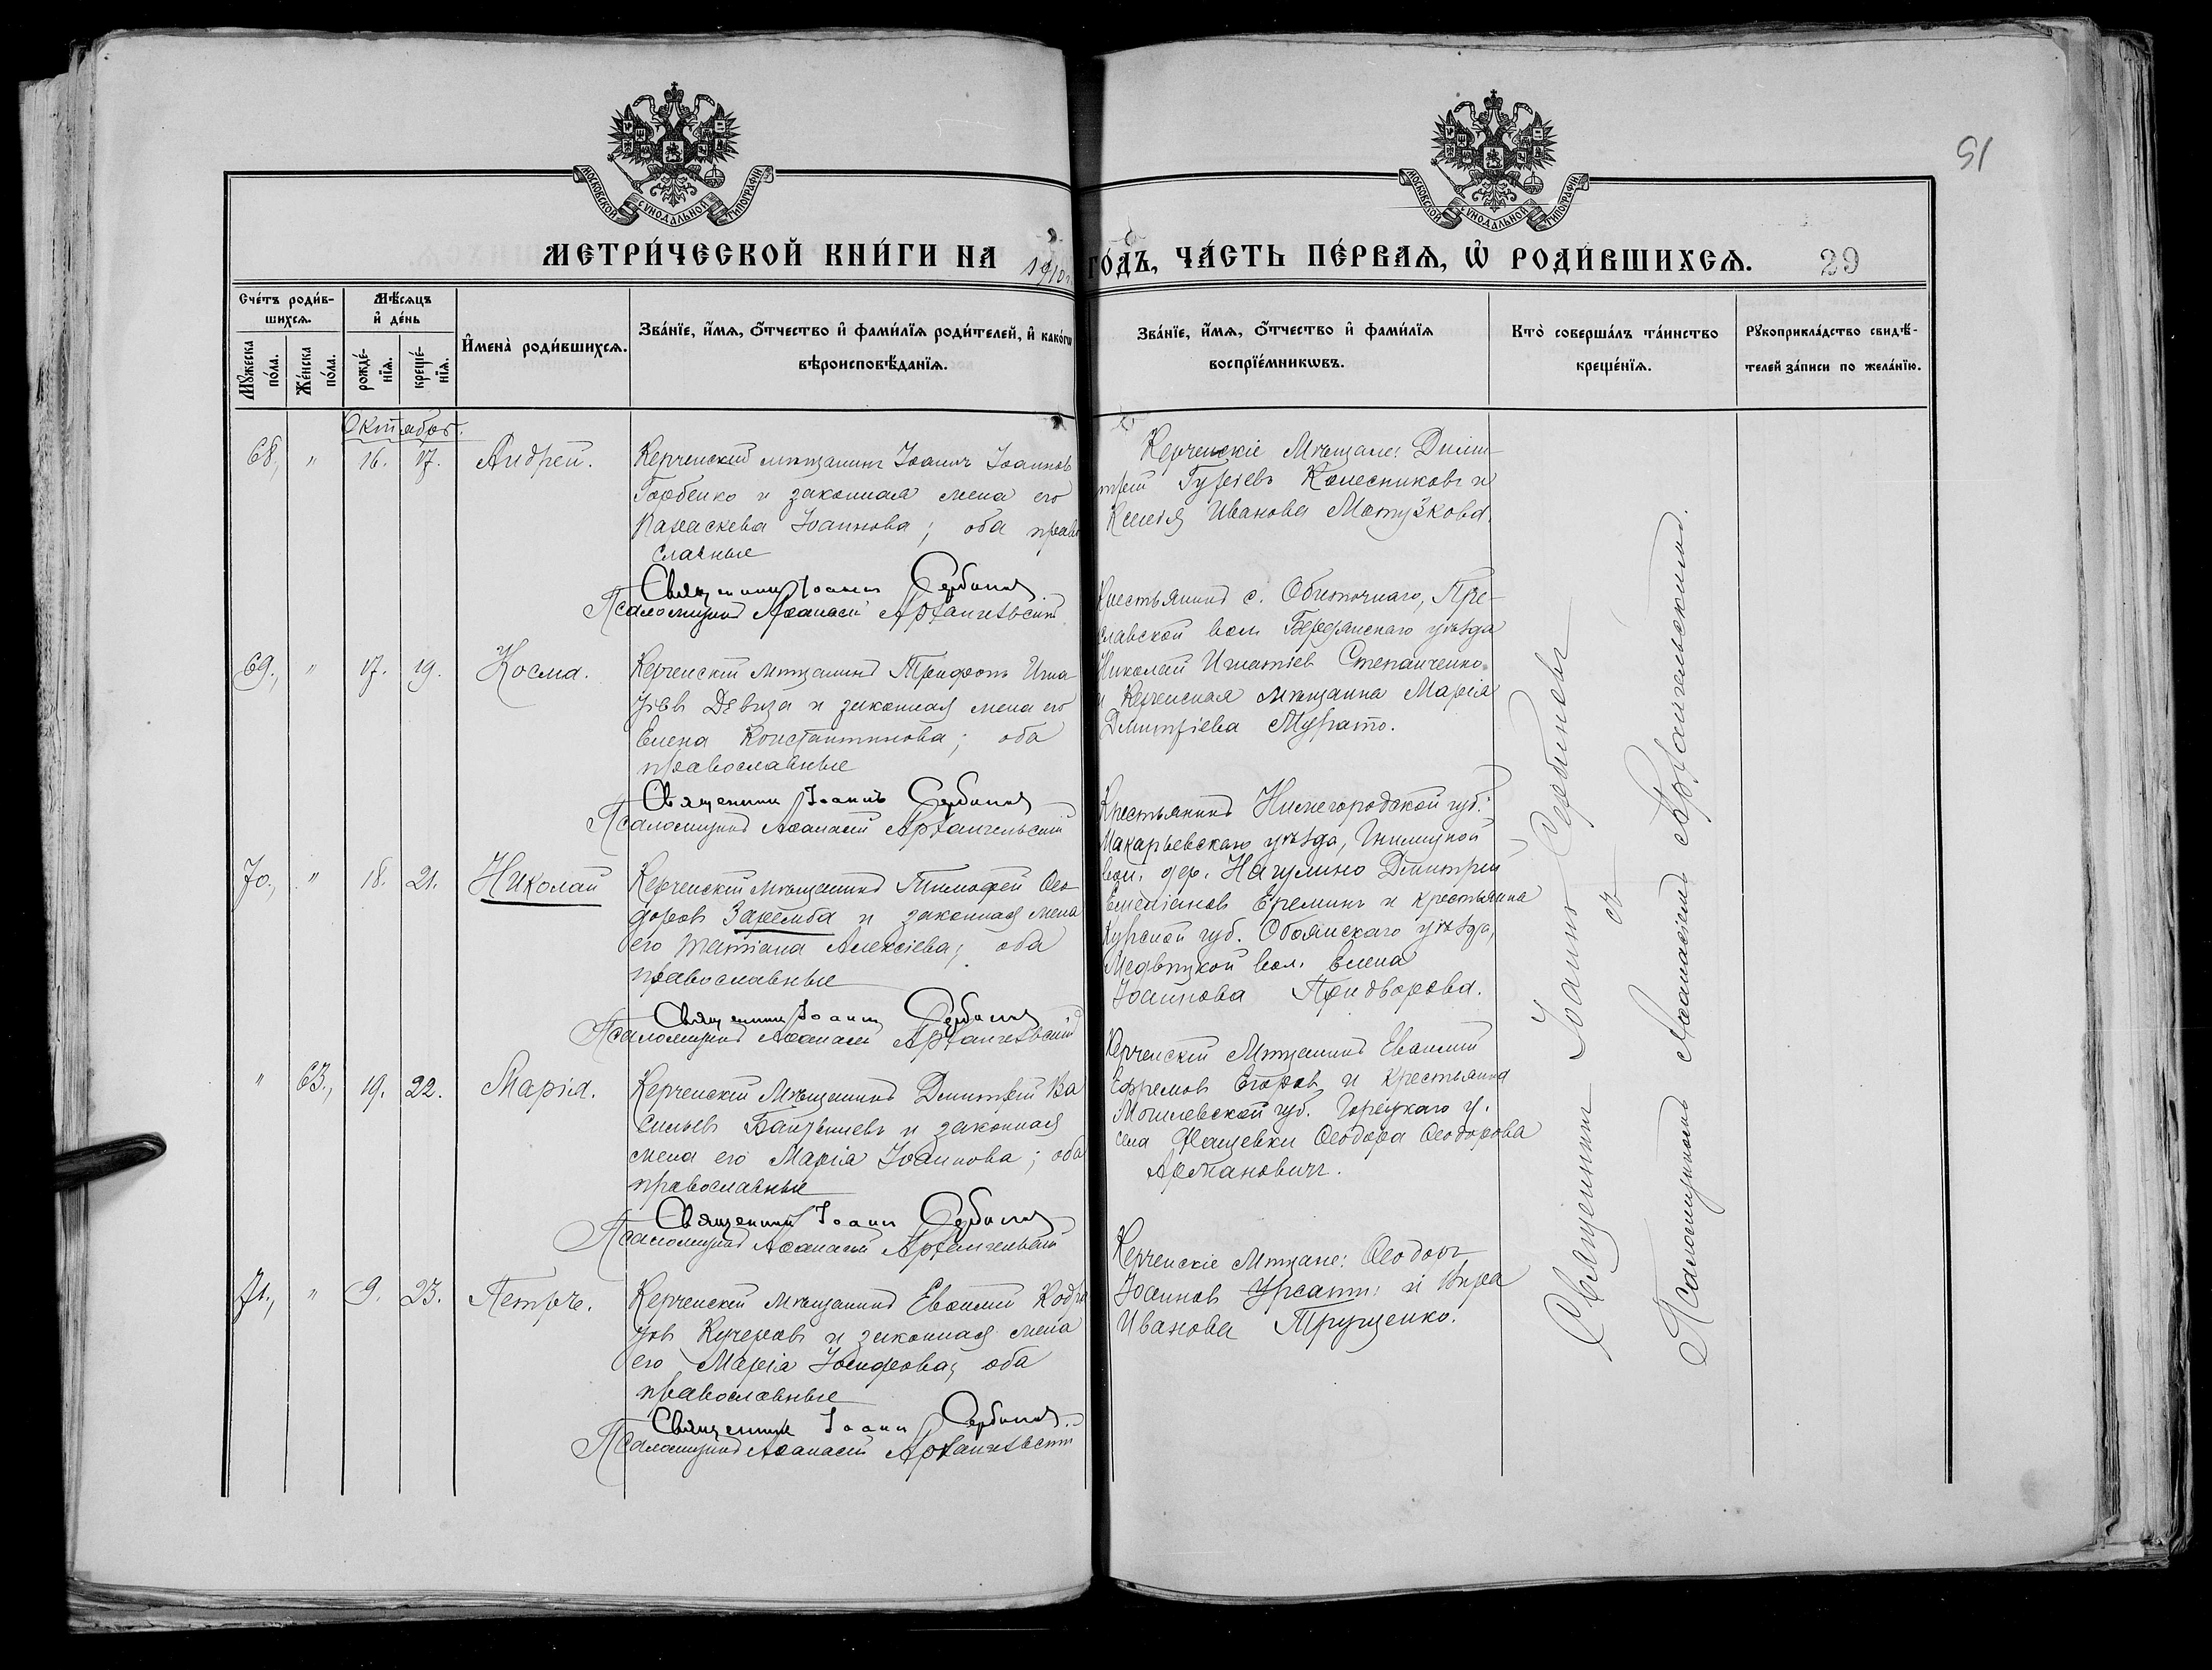 51
МОСКОВСКОЙ СѴНОДАЛЬНОЙ ТИПОГРАФІИ
МОСКОВСКОЙ СѴНОДАЛЬНОЙ ТИПОГРАФІИ
МЕТРИ́ЧЕСКОЙ КНИ́ГИ НА 1910 г. ГО́ДЪ, ЧА́СТЬ ПЕ́РВАѦ, Ѡ҆ РОДИ́ВШИХСѦ. 29
Сче́тъ роди́в-
шихсѧ.
Мꙋ́жеска по́ла.
Же́нска по́ла.
Мѣ́сѧцъ
и҆ де́нь
рожде́-
нїѧ.
креще́-
нїѧ.
И҆мена̀ роди́вшихсѧ.
Зва́нїе, и҆́мѧ, ѻ҆́тчество и҆ фами́лїѧ роди́телей, и҆ како́гѡ
вѣроисповѣ́данїѧ.
Зва́нїе, и҆́мѧ, ѻ҆́тчество и҆ фами́лїѧ
воспрїе́мникѡвъ.
Кто̀ соверша́лъ та́инство
креще́нїѧ.
Рꙋкоприкла́дство свидѣ́-
телей за́писи по жела́нїю.
Октябрь.
68., " 16. 17. Андрей.
Керченскій мѣщанинъ Іоаннъ Іоанновъ
Горбенко и законная жена его
Параскева Іоаннова; оба право
славные
Священникъ Іоаннъ Сербиновъ
Псаломщикъ Аѳанасій Архангельскій
Керченскіе Мѣщане: Дими-
трій Гурьевъ Колесниковъ и
Ксенія Иванова Матузкова.
69., " 17. 19. Косма.
Керченскій мѣщанинъ Трифонъ Игна
Девиза и законная жена его
Елена Константинова; оба
православные
Священникъ Іоаннъ Сербиновъ
Псаломщикъ Аѳанасій Архангельскій
Крестьянинъ с. Обиточнаго, Пре-
славской вол. Бердянскаго уѣзда
Николай Игнатіев Степанченко
и Керченская мѣщанка Марія
Димитріева Мурато.
70., " 18. 21. Николай
Керченскій мѣщанинъ Тимофей Ѳео
доровъ Заремба и законная жена
его Татіана Алексіева; оба
православные
Священникъ Іоаннъ Сербиновъ
Псаломщикъ Аѳанасій Архангельскій
Крестьянинъ Нижегородской губ.
Макарьевскаго уѣзда,
вол. дер. Нагулино Димитрій
Емеліановъ Ереминъ и крестьянка
Курской губ. Обоянскаго уѣзда,
вол. Елена
Іоаннова Придворова.
" 63., 19. 22. Марія.
Керченскій Мѣщанинъ Димитрій Ва
сильевъ и законная
жена его Марія Іоаннова; оба
православные
Священникъ Іоаннъ Сербиновъ
Псаломщикъ Аѳанасій Архангельскій
Керченскій Мѣщанинъ Евѳимій
Ефремовъ Егоровъ и Крестьянка
Могилевской губ. Горецкаго у.
села Ѳеодора Ѳеодорова
Арманович.
71., " 9. 23. Петръ.
Керченскій мѣщанинъ Евѳимій Кодра
товъ Кучеровъ и законная жена
его Марія Іосифова; оба
православные
Священникъ Іоаннъ Сербиновъ
Псаломщикъ Аѳанасій Архангельскій
Керченскіе Мѣщане: Ѳеодоръ
Іоанновъ Урсати и Вѣра
Иванова Трущенко.
Священникъ Іоаннъ Сербиновъ
съ
Псаломщикомъ Аѳанасіемъ Архангельскимъ.